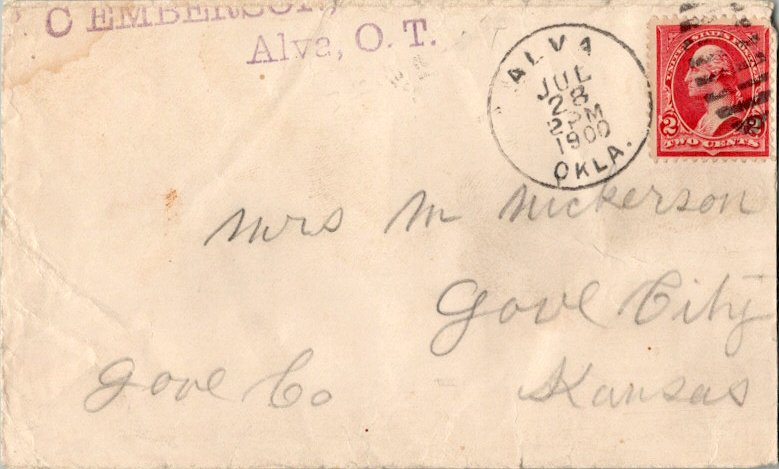 C EMBERSON,
Alva, O. T.
ALVA
JUL
28
2 PM
1900
OKLA.
UNITED STATES POSTAGE
2 2
TWO CENTS
Mrs M Nickerson
Gove City
Gove Co Kansas